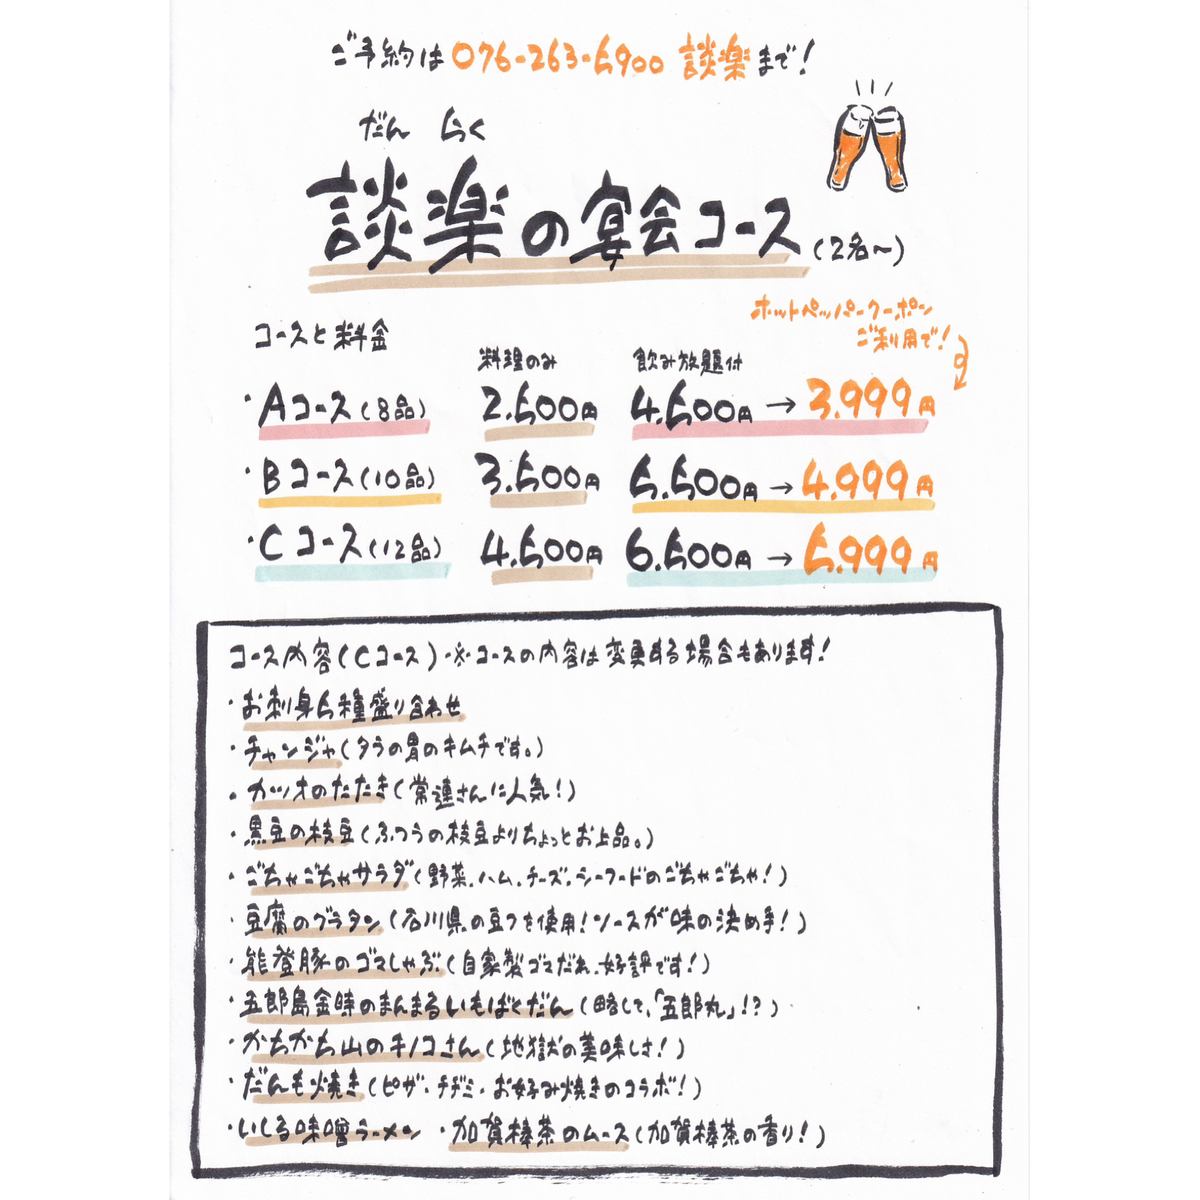 ご予約は076-263-5900 談楽まで!
だん らく
談楽の宴会コース(2名〜)
ホットペッパークーポン
ご利用で!
コースと料金
料理のみ 飲み放題付
・Aコース(8品) 2.500円 4.500円→3.999円
・Bコース(10品) 3.500円 5.500円→4.999円
・Cコース(12品) 4.500円 6.500円→5.999円
コース内容(Cコース)・※コースの内容は変更する場合もあります!
・お刺身5種盛り合わせ
・チャンジャ(タラの胃のキムチです。)
・カツオのたたき(常連さんに人気!)
・黒豆の枝豆(ふつうの枝豆よりちょっとお上品。)
・ごちゃごちゃサラダ(野菜.ハム.チーズ.シーフードのごちゃごちゃ!)
・豆腐のグラタン(石川県の豆フを使用!ソースが味の決め手!)
・能登豚のゴマしゃぶ(自家製ゴマだれ、好評です!)
・五郎島金時のまんまるいもばくだん(略して、「五郎丸」!?)
・かちかち山のキノコさん(地獄の美味しさ!)
・だんも焼き(ピザ・チヂミ・お好み焼きのコラボ!)
・いしる味噌ラーメン ・加賀棒茶のムース(加賀棒茶の香り!)